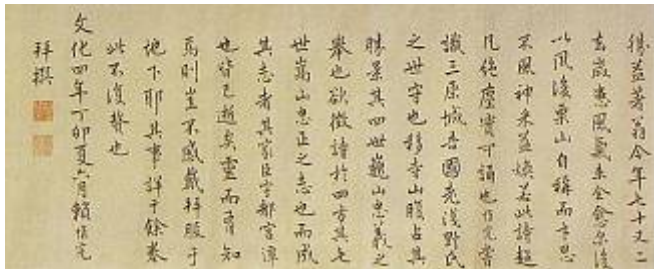 益著翁今年七十又二
去歳患風氣未全愈尓後
以風後栗山自稱而才思
不風神采益煥若此詩超
凡絶塵實可誦也惟完嘗
識三原城吾國老浅野氏
之世守也移寺山腹占其
勝景其四世巍山忠義之
擧也欲徴詩於四方其七
世嵩山忠正之志也而成
其志者其家臣宇都宮潭
也皆已逝矣靈而有知
焉則豈不感戴拜于
地下耶其事詳于餘巻
此不復贅也
文化四年丁卯夏六月頼惟完
拜撰